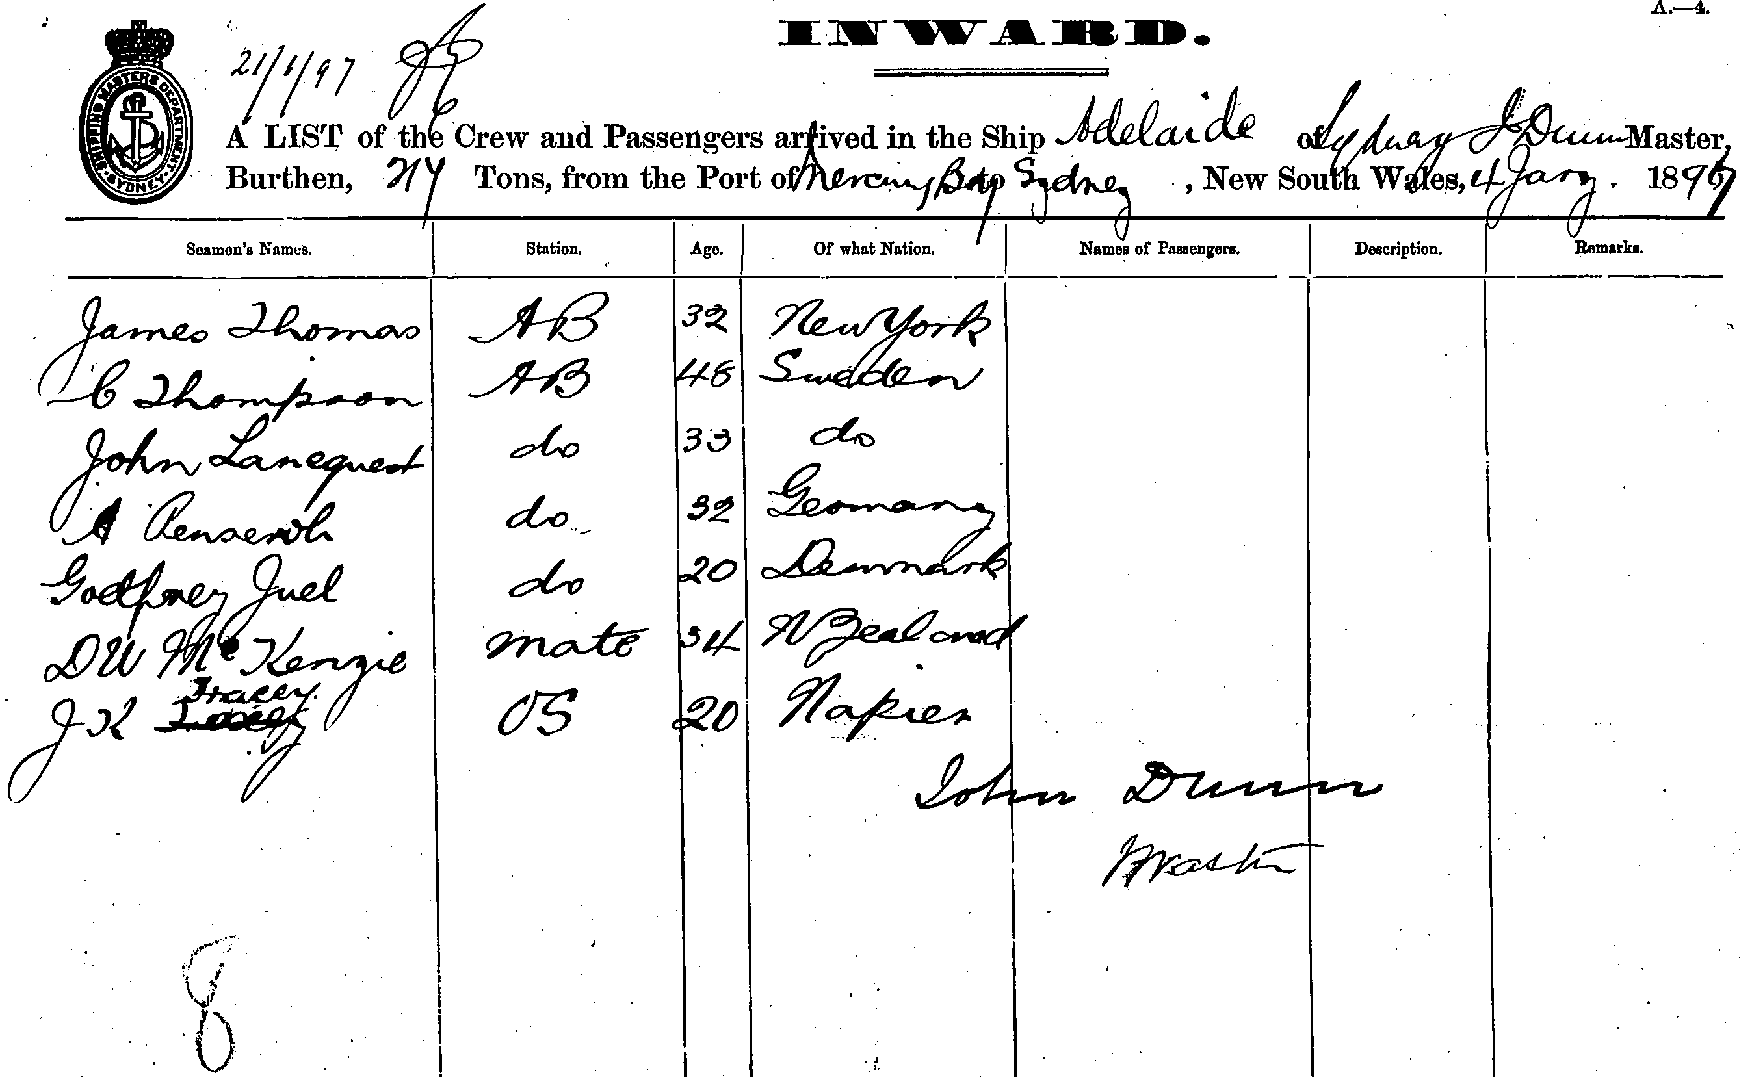 A.—4.
INWARD.
21/1/97
SHIPPING MASTERS DEPARTMENT SYDNEY
A LIST of the Crew and Passengers arrived in the Ship Adelaide of Sydney J Dunn Master,
Burthen, Tons, from the Port of Mercury Bay Sydney, New South Wales, 4 Jany. 1897
Seamen's Names. Station. Age. Of what Nation. Names of Passengers. Description. Remarks.
James Thomas AB 32 New York
C Thompson AB 48 Sweden
John Lanequest do 33 do
A do 32 Germany
Godfrey Juel do 20 Denmark
DW McKenzie mate 34 N Zealand
Tracey
J K OS 20 Napier
John Dunn
Master
8